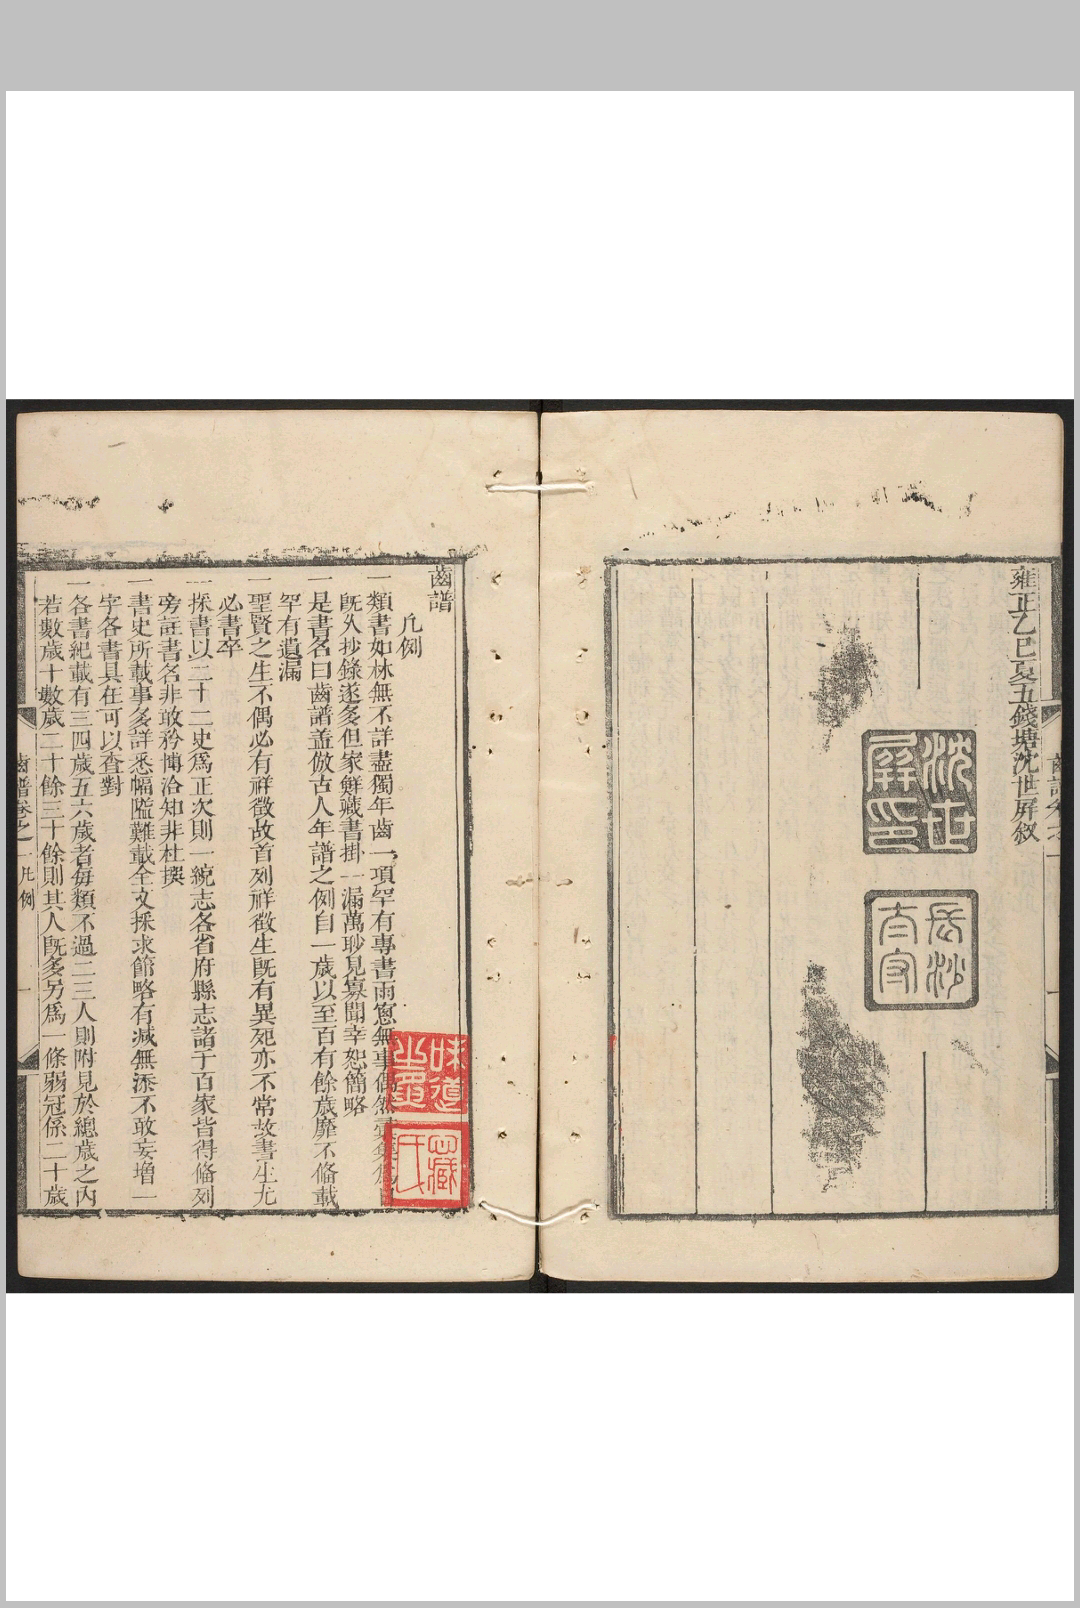 雍正乙巳夏五錢塘沈世屏敘
沈世
屏印
長沙
太守
齒譜
凡例
一類書如林無不詳盡獨年齒一項罕有專書雨窻無事偶然
旣久抄錄遂多但家鮮藏書掛一漏萬聊見寡聞幸恕簡略
一是書名曰齒譜蓋倣古人年譜之例自一歲以至百有餘歲靡不備載
罕有遺漏
一聖賢之生不偶必有祥徵故首列祥徵生旣有異死亦不常故書生尤
必書卒
一採書以二十二史爲正次則一統志各省府縣志諸子百家皆得備列
旁註書名非敢矜博洽知非杜撰
一書史所載事多詳悉幅隘難載全文採求節略有減無添不敢妄增一
字各書具在可以查對
一各書紀載有三四歲五六歲者每類不過二三人則附見於總歲之內
若數歲十數歲二十餘三十餘則其人旣多另爲一條弱冠係二十歲
齒譜卷之一凡例
一
味道
氏
藏